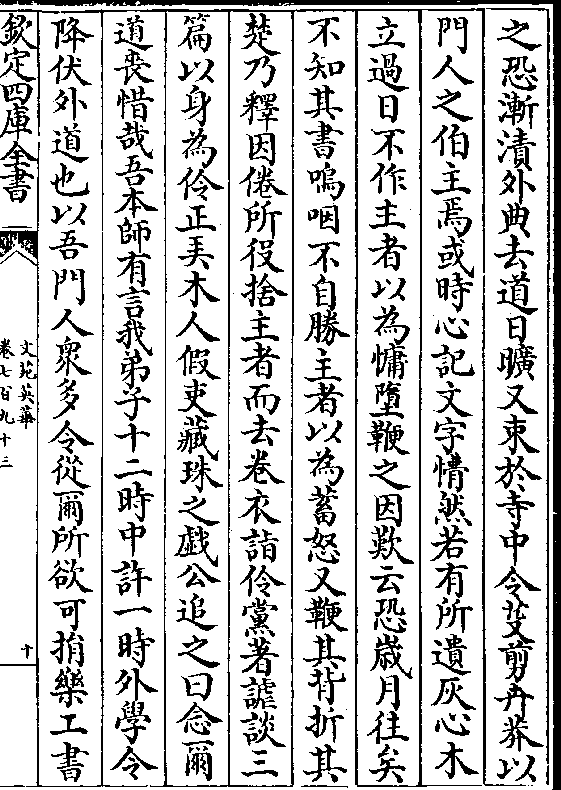 之恐漸漬外典去道日曠又束於寺中令芟剪卉莽以
門人之伯主焉或時心記文字懵然若有所遺灰心木
立過日不作主者以為慵墮鞭之因歎云恐歲月往矣
不知其書嗚咽不自勝主者以為蓄怒又鞭其背折其
楚乃釋因倦所役捨主者而去卷衣詣伶黨著謔談三
篇以身為伶正弄木人假吏藏珠之戯公追之曰念爾
道丧惜哉吾本師有言我弟子十二時中許一時外學令
降伏外道也以吾門人衆多今從爾所欲可捐樂工書
欽定四庫全書
文苑英華
卷七百九十三
十